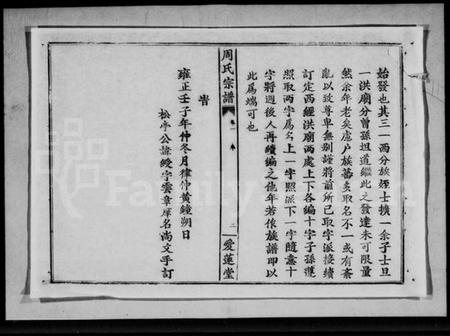 始發也其三一西分族姪士擴一余子士旦
一洪廟分曾孫坦道繼此之發達未可限量
然余年老矣慮户族蕃多取名不一或有紊
亂以致尊卑無別謹將前所已取字派接續
訂定西經洪廟兩處上下各編十字子孫遵
照取两字爲名上一字照派下一字隨意十
字將過後人再續編之他年若修族譜即以
此爲端可也
旹
雍正壬子年仲冬月律中黃鐘朔日
松亭公諱綬字雲章庠名尚文手訂
周氏宗譜
卷一
二
愛蓮堂
FamilySearch